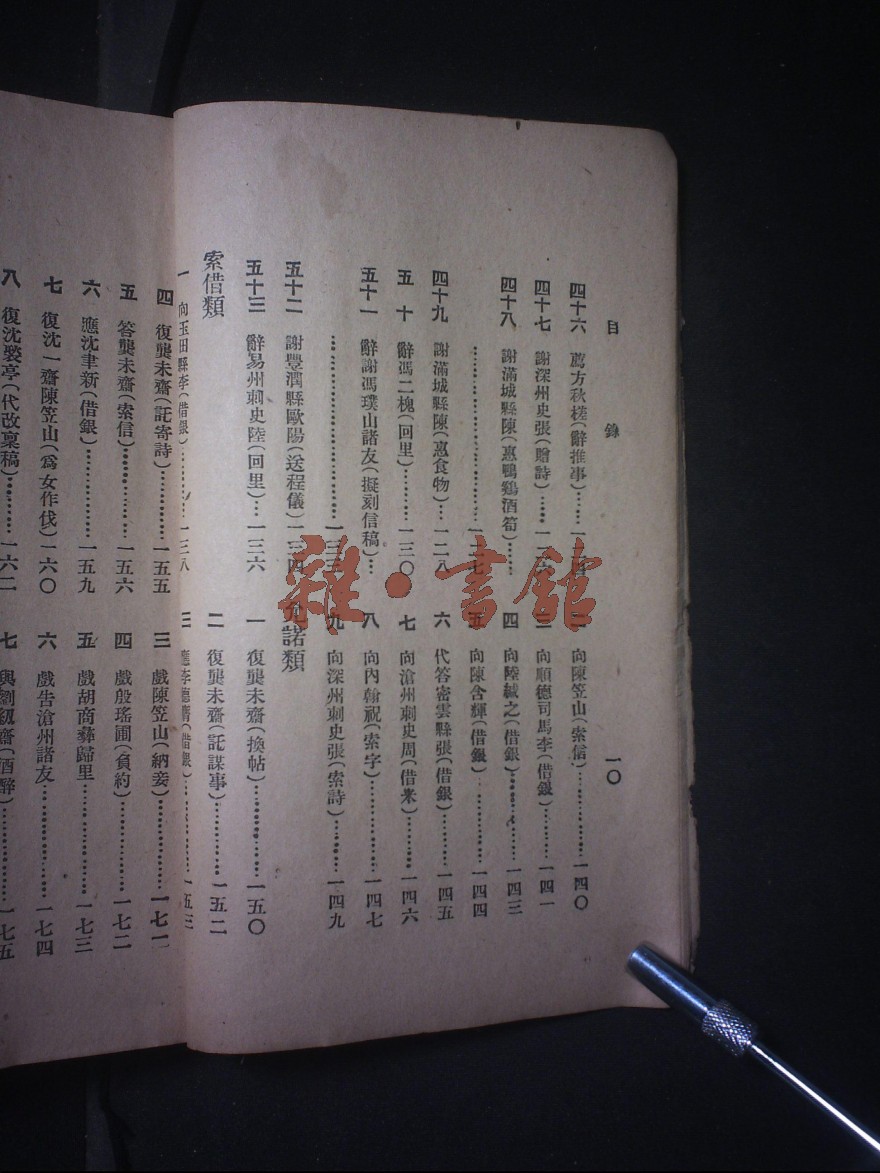 目錄 一〇
四十六 薦方秋槎(辭推事)………一
四十七 謝深州史張(贈詩)……一二六
四十八 謝滿城縣陳(惠鴨鷄酒筍)……
……………………一二七
四十九 謝滿城縣陳(惠食物)…一二八
五十 辭馮二槐(回里)………一三〇
五十一 辭謝馮璞山諸友(擬刻信稿)…
……………………一三三
五十二 謝豐潤縣歐陽(送程儀)一三四
五十三 辭易州刺史陸(回里)…一三六
索借類
一 向玉田縣李(借銀)…………一三八
二 向陳笠山(索信)…………一四〇
三 向順德司馬李(借銀)………一四一
四 向陸緘之(借銀)…………一四三
五 向陳含輝(借銀)…………一四四
六 代答密雲縣張(借銀)………一四五
七 向滄州刺史周(借米)………一四六
八 向內翰祝(索字)…………一四七
九 向深州刺史張(索詩)………一四九
允諾類
一 復龔未齋(換帖)…………一五〇
二 復龔未齋(託謀事)…………一五二
三 應李德齋(借銀)…………一五三
四 復龔未齋(託寄詩)…………一五五
五 答龔未齋(索信)…………一五六
六 應沈聿新(借銀)…………一五九
七 復沈一齋陳笠山(爲女作伐)一六〇
八 復沈婺亭(代改稟稿)………一六二
三 戲陳笠山(納妾)…………一七一
四 戲殷瑤圃(負約)…………一七二
五 戲胡商彝歸里…………一七三
六 戲告滄州諸友…………一七四
七 與劉 齋(酒醉)…………一七五
雜·書館